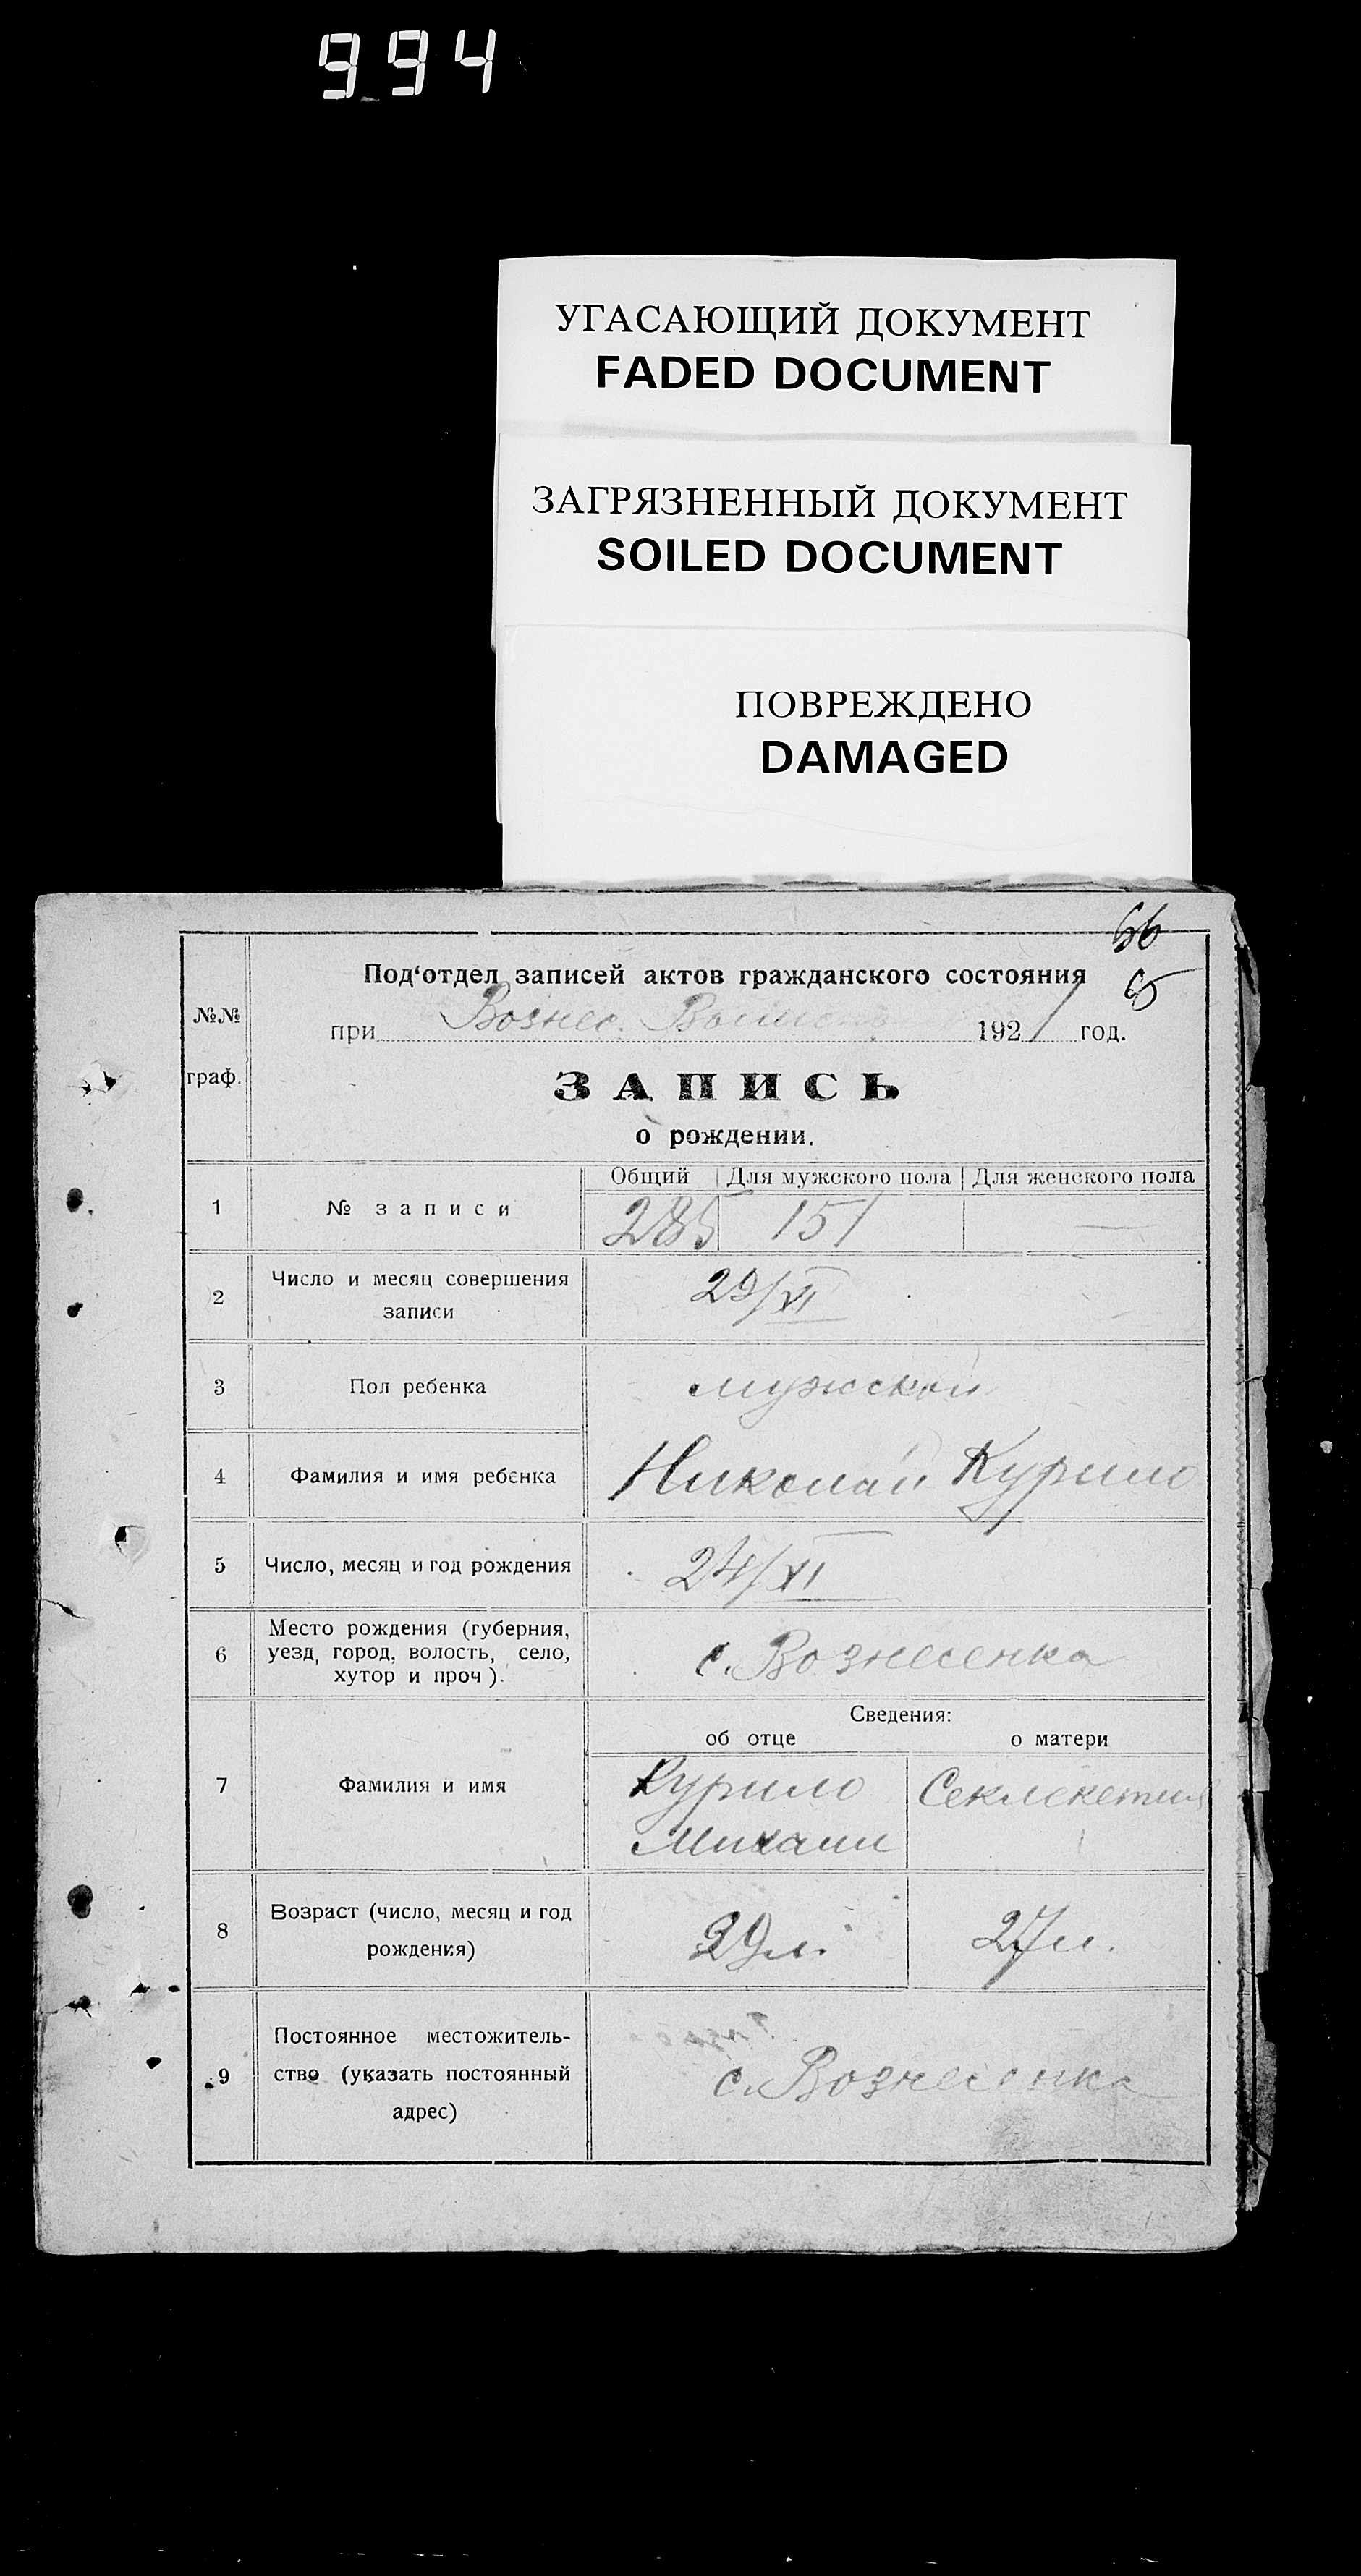 994
УГАСАЮЩИЙ ДОКУМЕНТ
FADED DOCUMENT
ЗАГРЯЗНЕННЫЙ ДОКУМЕНТ
SOILED DOCUMENT
ПОВРЕЖДЕНО
DAMAGED
66
65
№№ граф.
Под‘отдел записей актов гражданского состояния
при Вознес. 1921 год.
ЗАПИСЬ
о рождении.
Общий Для мужского пола Для женского пола
1 № записи 285 151 —
2 Число и месяц совершения
записи 29/VI
3 Пол ребенка мужской
4 Фамилия и имя ребенка Николай Курило
5 Число, месяц и год рождения 24/XI
6 Место рождения (губерния,
уезд, город, волость, село,
хутор и проч.). с. Вознесенка
Сведения:
об отце о матери
7 Фамилия и имя Курило Секлекетия
Михаил
8 Возраст (число, месяц и год
рождения) 29 л. 27 л.
9 Постоянное местожитель-
ство (указать постоянный
адрес) с. Вознесенка